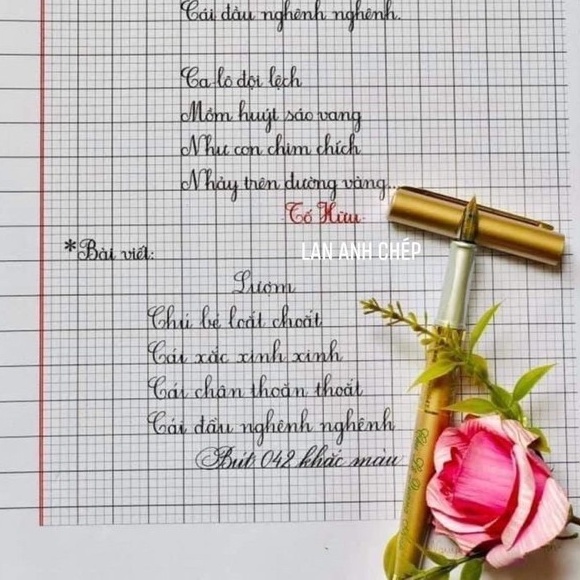 Cái đầu nghênh nghênh.
Ca-lô đội lệch
Mồm huýt sáo vang
Như con chim chích
Nhảy trên đường vàng...
Tố Hữu
LAN ANH CHÉP
*Bài viết:
Lượm
Chú bé loắt choắt
Cái xắc xinh xinh
Cái chân thoăn thoắt
Cái đầu nghênh nghênh
Bút 042 khắc màu